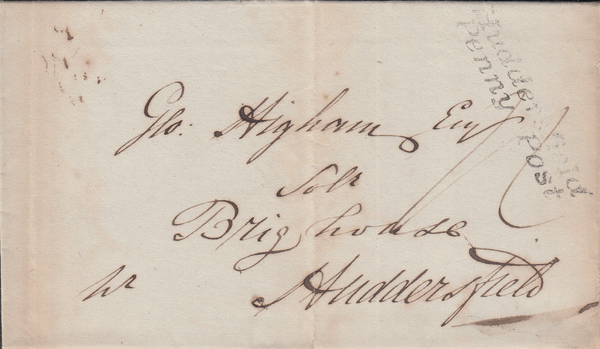 Huddersfield
Penny Post
Geo: Higham Esqr
Solr
Brighouse
nr Huddersfield